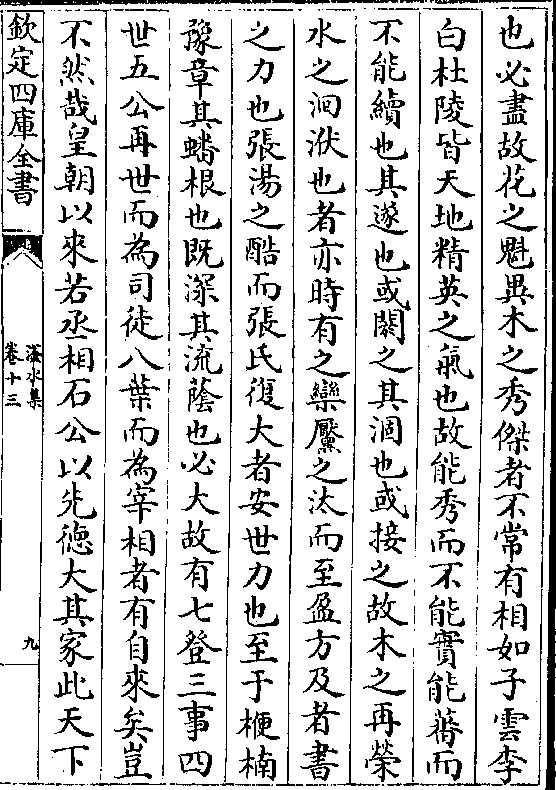 也必盡故花之魁異木之秀傑者不常有相如子雲李
白杜陵皆天地精英之氣也故能秀而不能實能蕃而
不能續也其邃也或閼之其涸也或接之故木之再榮
水之洄洑也者亦時有之欒黶之汰而至盈方及者書
之力也張湯之酷而張氏復大者安世力也至于楩楠
豫章其蟠根也既深其流蔭也必大故有七登三事四
世五公再世而為司徒八葉而為宰相者有自來矣豈
不然哉皇朝以來若丞相石公以先德大其家此天下
欽定四庫全書
滏水集
卷十三
九